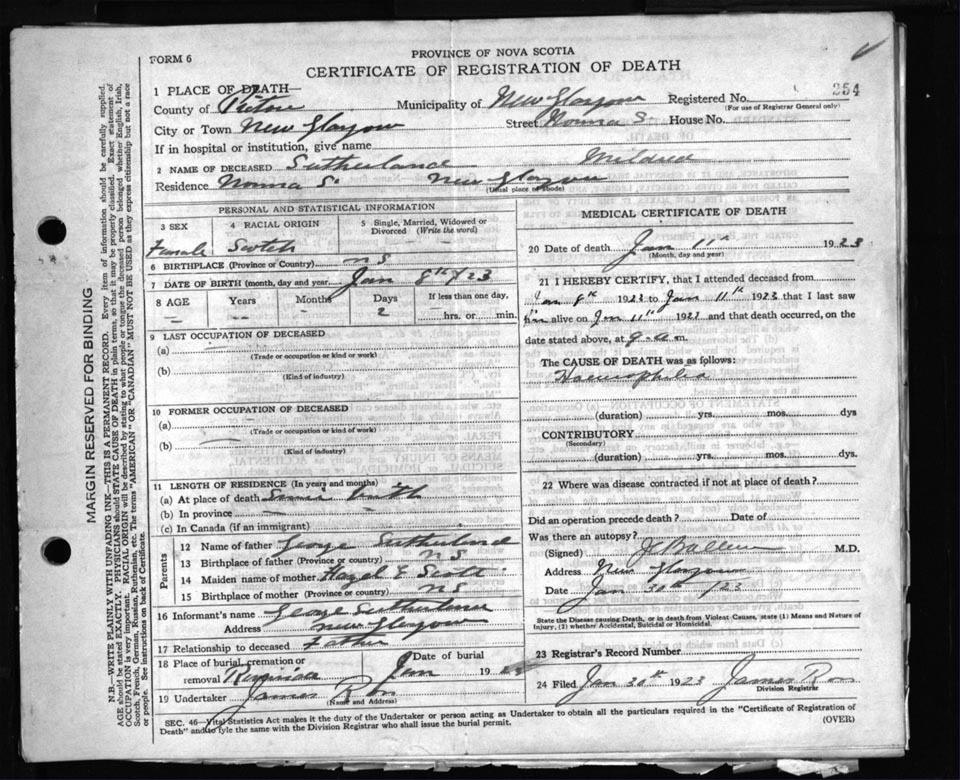 FORM 6
PROVINCE OF NOVA SCOTIA
CERTIFICATE OF REGISTRATION OF DEATH
1 PLACE OF DEATH—
County of Pictou Municipality of New Glasgow Registered No. 354
(For use of Registrar General only)
City or Town New Glasgow Street Norma S. House No.
If in hospital or institution, give name
2 NAME OF DECEASED Sutherland Mildred
Residence Norma S. New Glasgow
(Usual place of abode)
PERSONAL AND STATISTICAL INFORMATION
3 SEX 4 RACIAL ORIGIN 5 Single, Married, Widowed or Divorced (Write the word)
Female Scotch —
6 BIRTHPLACE (Province or Country) NS
7 DATE OF BIRTH (month, day and year) Jan 8th /23
8 AGE Years Months Days If less than one day,
— — — 2 — hrs. or — min.
9 LAST OCCUPATION OF DECEASED
(a) —
(Trade or occupation or kind of work)
(b)
(Kind of industry)
10 FORMER OCCUPATION OF DECEASED
(a)
(Trade or occupation or kind of work)
(b) —
(Kind of industry)
11 LENGTH OF RESIDENCE (In years and months)
(a) At place of death Since birth
(b) In province —
(c) In Canada (if an immigrant) —
Parents
12 Name of father George Sutherland
13 Birthplace of father (Province or country) NS
14 Maiden name of mother Hazel E Scott
15 Birthplace of mother (Province or country) NS
16 Informant's name George Sutherland
Address New Glasgow
17 Relationship to deceased Father
18 Place of burial, cremation or removal Riverside Date of burial Jan 1923
19 Undertaker James
(Name and Address)
MEDICAL CERTIFICATE OF DEATH
20 Date of death Jan 11th 1923
(Month, day and year)
21 I HEREBY CERTIFY, that I attended deceased from
Jan 8th 1923 to Jan 11th 1923 that I last saw
h alive on Jan 11th 1923 and that death occurred, on the
date stated above, at 9 a.m.
The CAUSE OF DEATH was as follows:
Haemophilia
(duration) yrs. mos. dys
CONTRIBUTORY
(Secondary)
(duration) yrs. mos. dys.
22 Where was disease contracted if not at place of death?
Did an operation precede death? Date of
Was there an autopsy?
(Signed) M.D.
Address New Glasgow
Date Jan 30th /23
State the Disease causing Death, or in death from Violent Causes, state (1) Means and Nature of
Injury, (2) whether Accidental, Suicidal or Homicidal.
23 Registrar's Record Number
24 Filed Jan 30th 1923 James
Division Registrar
SEC. 46—Vital Statistics Act makes it the duty of the Undertaker or person acting as Undertaker to obtain all the particulars required in the "Certificate of Registration of
Death" and to fyle the same with the Division Registrar who shall issue the burial permit. (OVER)
MARGIN RESERVED FOR BINDING
N.B.—WRITE PLAINLY WITH UNFADING INK—THIS IS A PERMANENT RECORD. Every item of information should be carefully supplied.
AGE should be stated EXACTLY. PHYSICIANS should STATE CAUSE OF DEATH in plain terms, so that it may be properly classified. Exact statement of
OCCUPATION is very important. RACIAL ORIGIN will be described by stating to what people or tongue the deceased person belonged whether English, Irish,
Scotch, French, German, Russian, Ruthenian, etc. The terms "AMERICAN" OR "CANADIAN" MUST NOT BE USED as they express citizenship but not a race
or people. See instructions on back of Certificate.